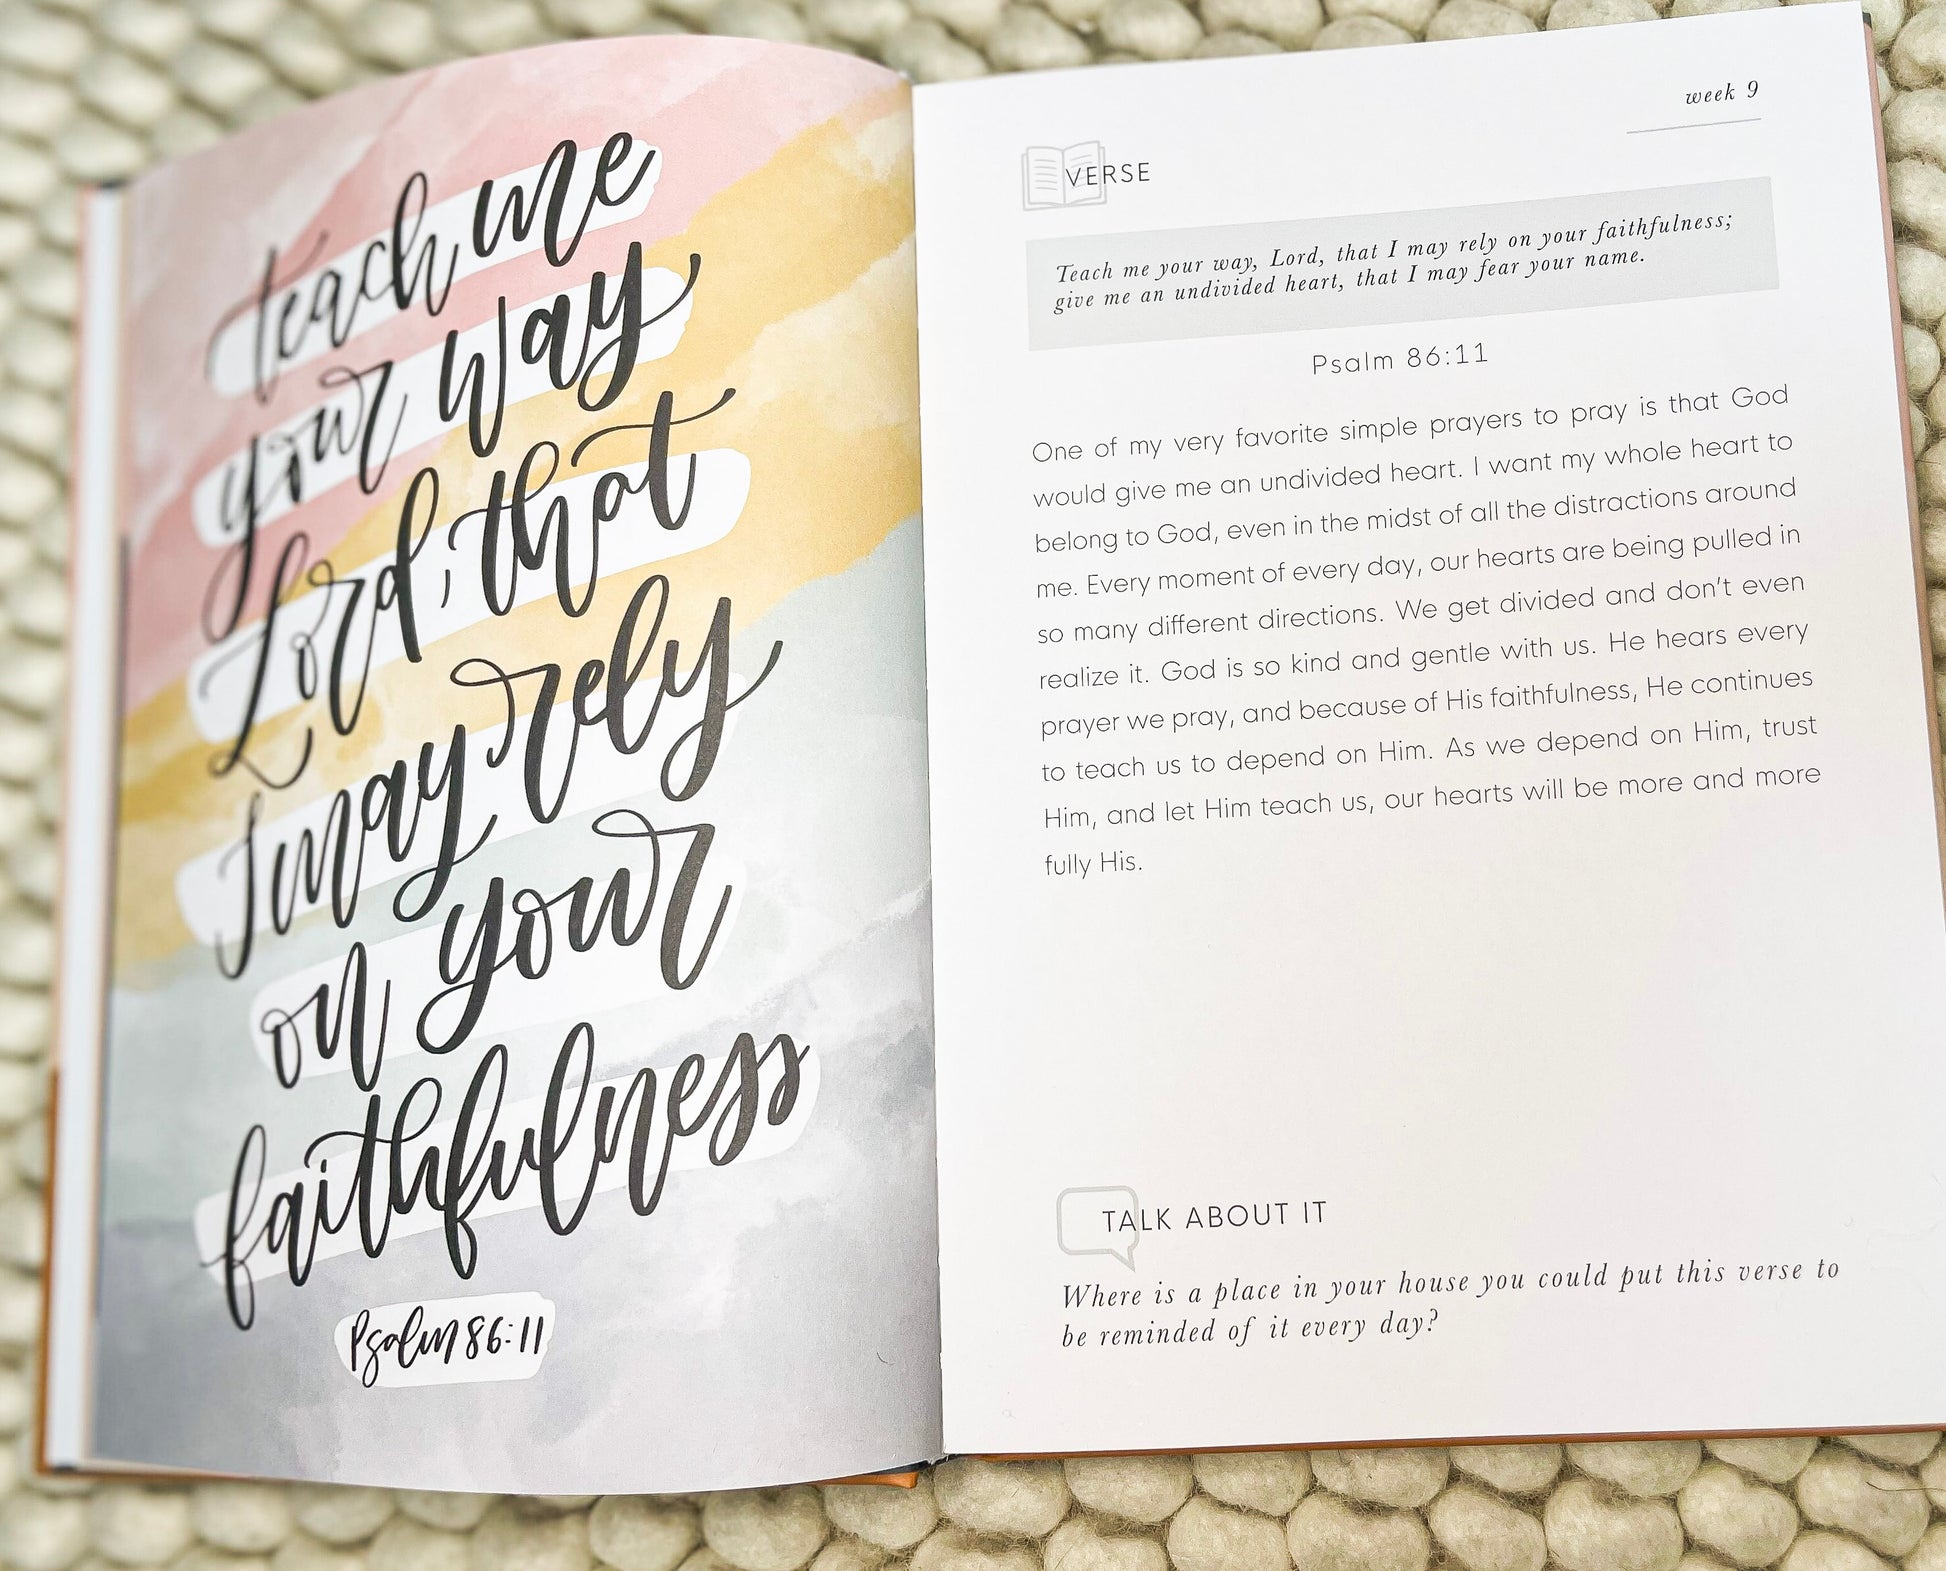 teach me
your way
Lord, that
I may rely
on your
faithfulness
Psalm 86:11
week 9
VERSE
Teach me your way, Lord, that I may rely on your faithfulness;
give me an undivided heart, that I may fear your name.
Psalm 86:11
One of my very favorite simple prayers to pray is that God
would give me an undivided heart. I want my whole heart to
belong to God, even in the midst of all the distractions around
me. Every moment of every day, our hearts are being pulled in
so many different directions. We get divided and don't even
realize it. God is so kind and gentle with us. He hears every
prayer we pray, and because of His faithfulness, He continues
to teach us to depend on Him. As we depend on Him, trust
Him, and let Him teach us, our hearts will be more and more
fully His.
TALK ABOUT IT
Where is a place in your house you could put this verse to
be reminded of it every day?